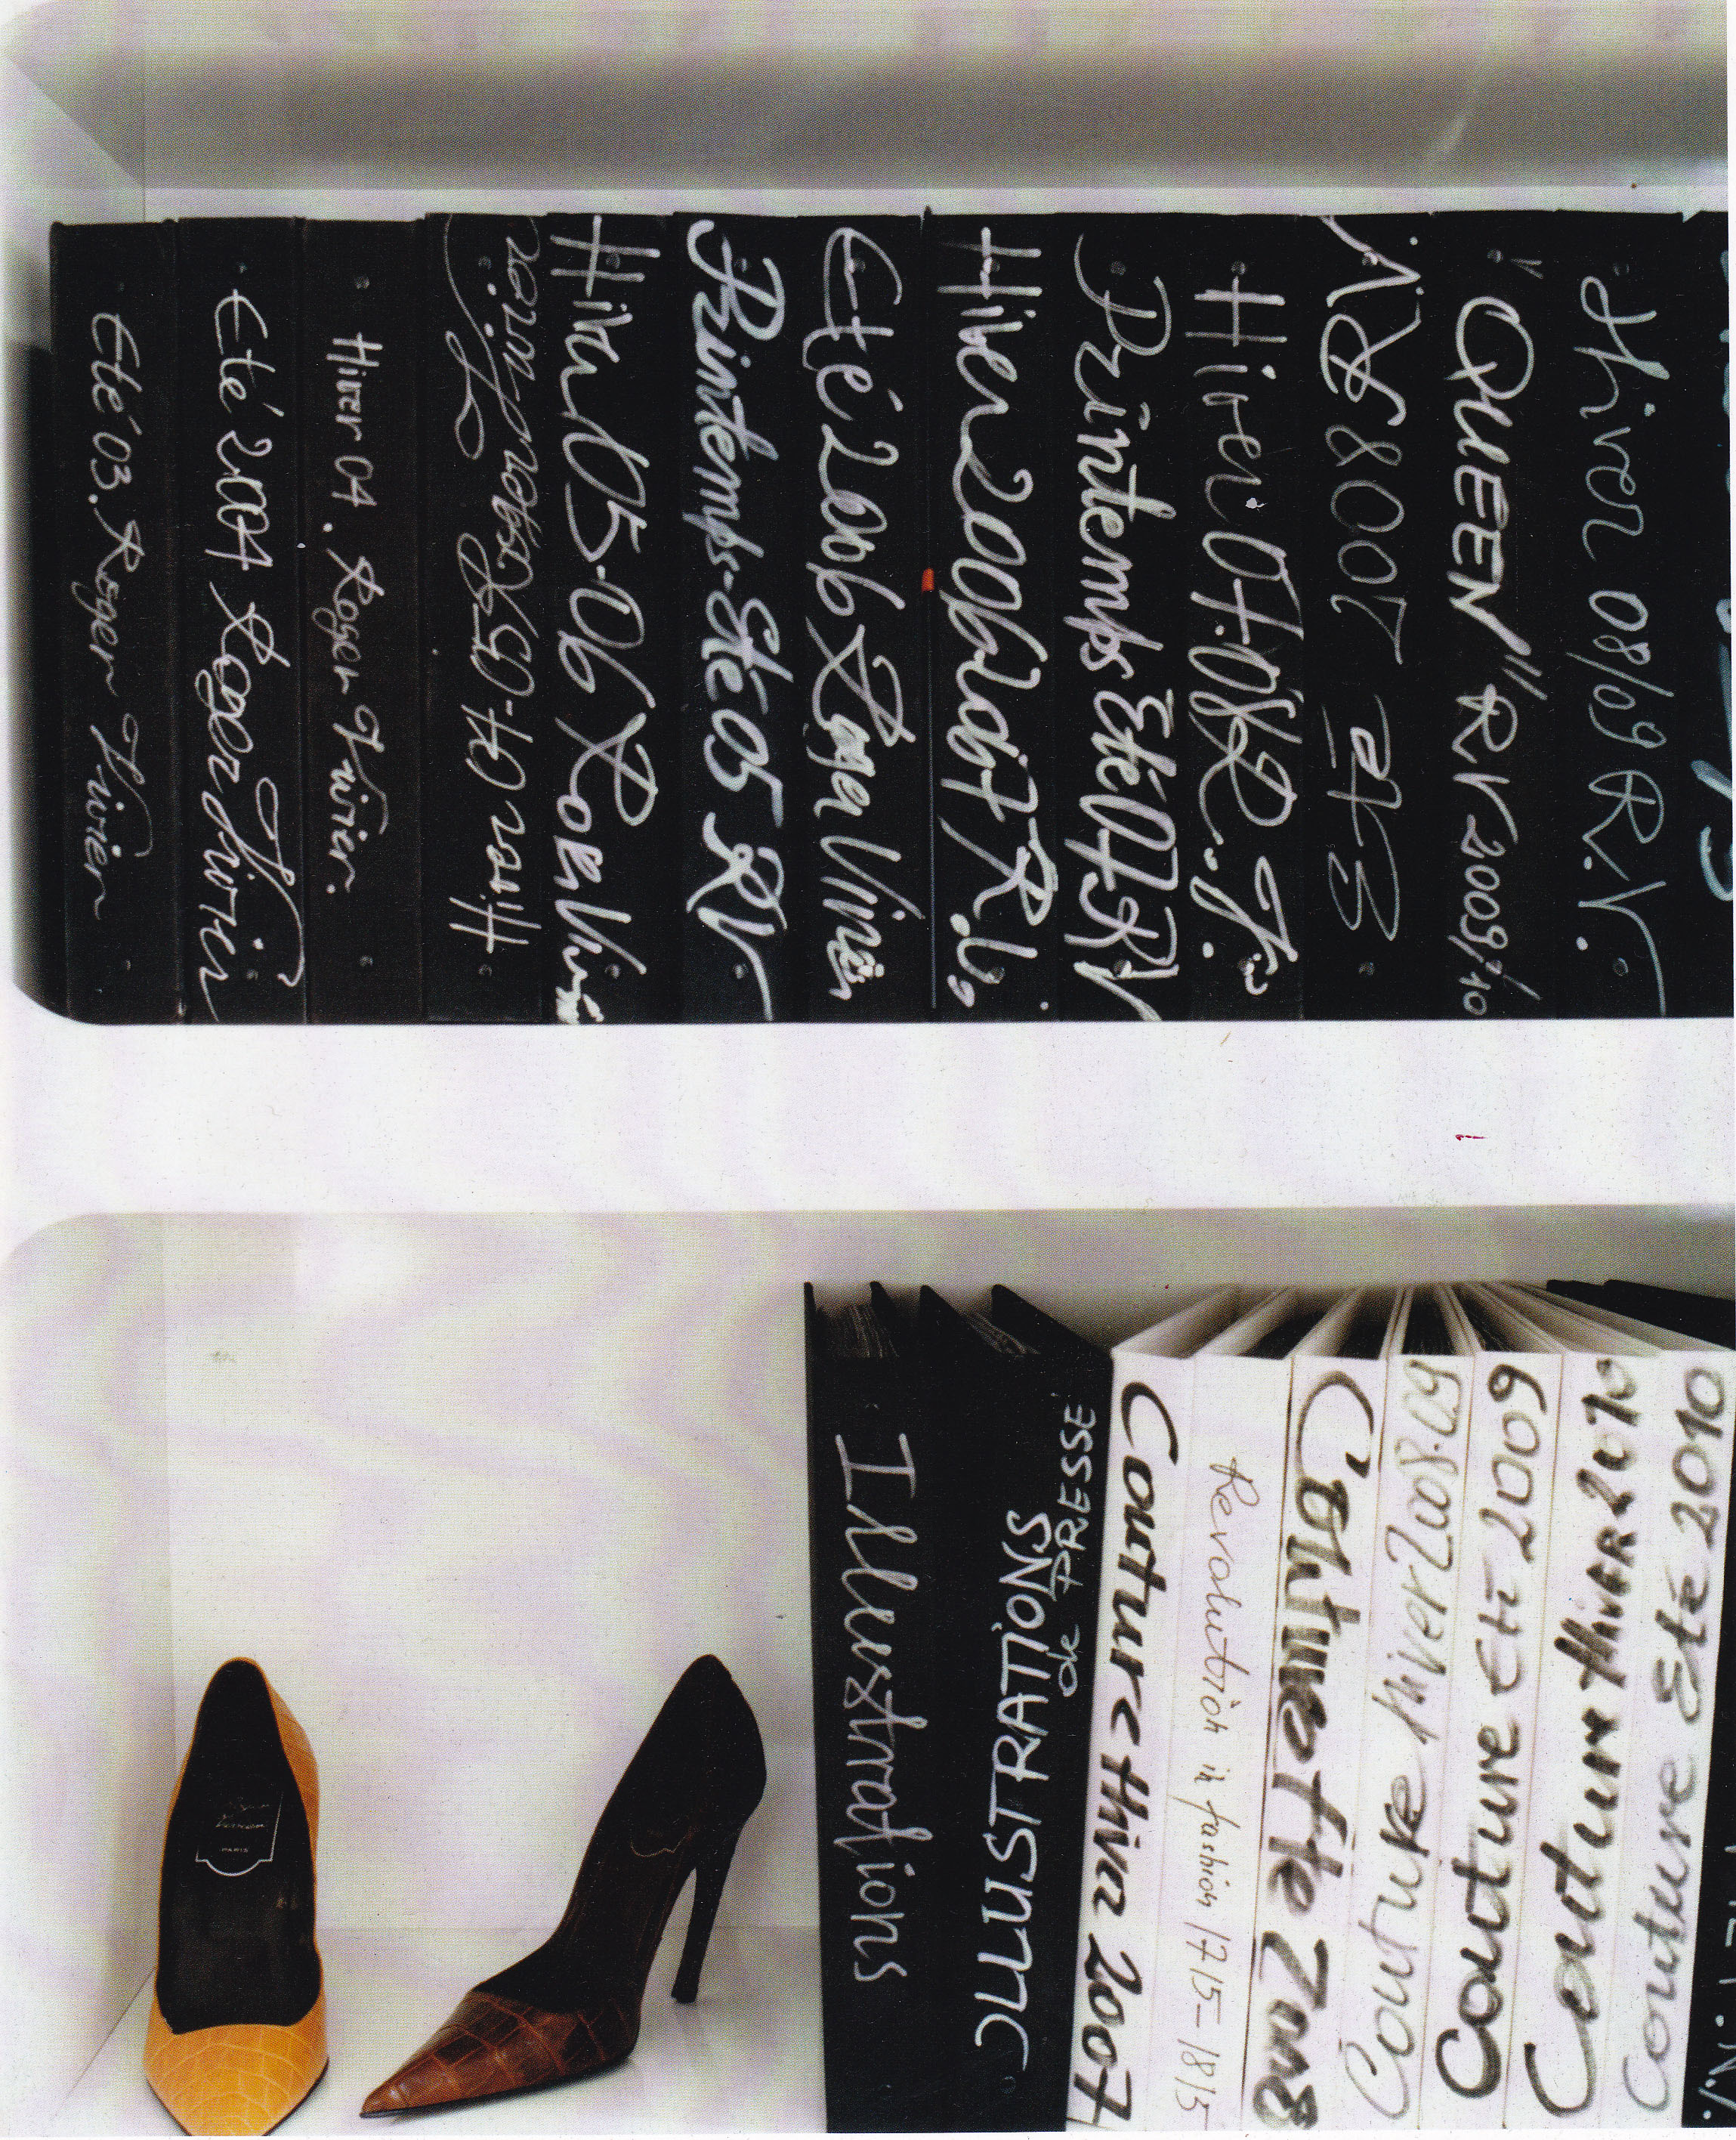 Eté 03. Roger Vivier
Eté 2004 Roger Vivier
Hiver 04. Roger Vivier.
Hiver 04-05 RV
Hiver 05-06 Roger Vivier
Printemps-Eté 05 RV
Eté 2006 Roger Vivier
Hiver 2006 2007 R.V.
Printemps Eté 07 RV
Hiver 07-08 R.V.
Eté 2008 RV.
"QUEEN" RV 2009/10
Hiver 08/09 R.V.
Illustrations
ILLUSTRATIONS
de PRESSE
Couture Hiver 2007
Revolution in fashion 1715-1815
Couture Eté 2008
Couture Hiver 2008.09
Couture Eté 2009
Couture Hiver 2010
Couture Eté 2010
Roger
Vivier
PARIS